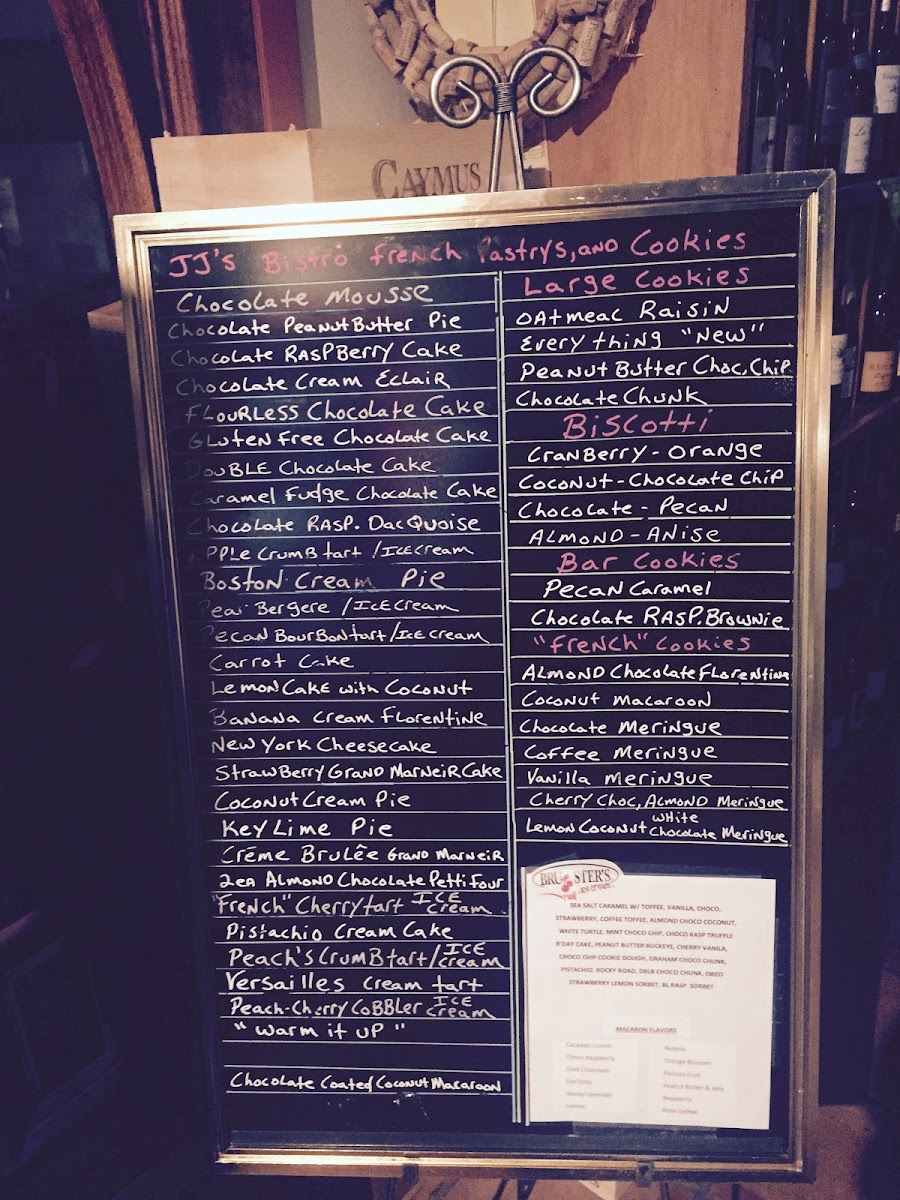 CAYMUS
JJ's Bistro French Pastrys, and Cookies
Chocolate Mousse
Chocolate Peanut Butter Pie
Chocolate Raspberry Cake
Chocolate Cream Eclair
Flourless Chocolate Cake
Gluten Free Chocolate Cake
Double Chocolate Cake
Caramel Fudge Chocolate Cake
Chocolate Rasp. Dacquoise
Apple Crumb tart / Ice cream
Boston Cream Pie
Pear Bergere / Ice Cream
Pecan Bourbon tart / Ice cream
Carrot Cake
Lemon Cake with Coconut
Banana Cream Florentine
New York Cheesecake
Strawberry Grand Marneir Cake
Coconut Cream Pie
Key Lime Pie
Crēme Brulêe Grand Marneir
2ea Almond Chocolate Petti Four
"French" Cherry tart Ice Cream
Pistachio Cream Cake
Peach's Crumb tart / Ice cream
Versailles Cream tart
Peach-Cherry Cobbler Ice cream
"Warm it up"
Chocolate Coated Coconut Macaroon
Large Cookies
Oatmeal Raisin
Everything "New"
Peanut Butter Choc, Chip
Chocolate Chunk
Biscotti
Cranberry - Orange
Coconut - Chocolate Chip
Chocolate - Pecan
Almond - Anise
Bar Cookies
Pecan Caramel
Chocolate Rasp. Brownie
"French" Cookies
Almond Chocolate Florentina
Coconut Macaroon
Chocolate Meringue
Coffee Meringue
Vanilla Meringue
Cherry Choc, Almond Meringue
Lemon Coconut White Chocolate Meringue
BRUSTER'S
real ice cream
SEA SALT CARAMEL W/ TOFFEE, VANILLA, CHOCO,
STRAWBERRY, COFFEE TOFFEE, ALMOND CHOCO COCONUT,
WHITE TURTLE, MINT CHOCO CHIP, CHOCO RASP TRUFFLE
B'DAY CAKE, PEANUT BUTTER BUCKEYE, CHERRY VANILA,
CHOCO CHIP COOKIE DOUGH, GRAHAM CHOCO CHUNK,
PISTACHIO, ROCKY ROAD, DBLB CHOCO CHUNK, OREO
STRAWBERRY LEMON SORBET, BL RASP. SORBET
MACARON FLAVORS
Caramel Crunch
Choco Raspberry
Dark Chocolate
Earl Grey
Honey Lavender
Lemon
Nutella
Orange Blossom
Passion Fruit
Peanut Butter & Jelly
Raspberry
Rose Lychee